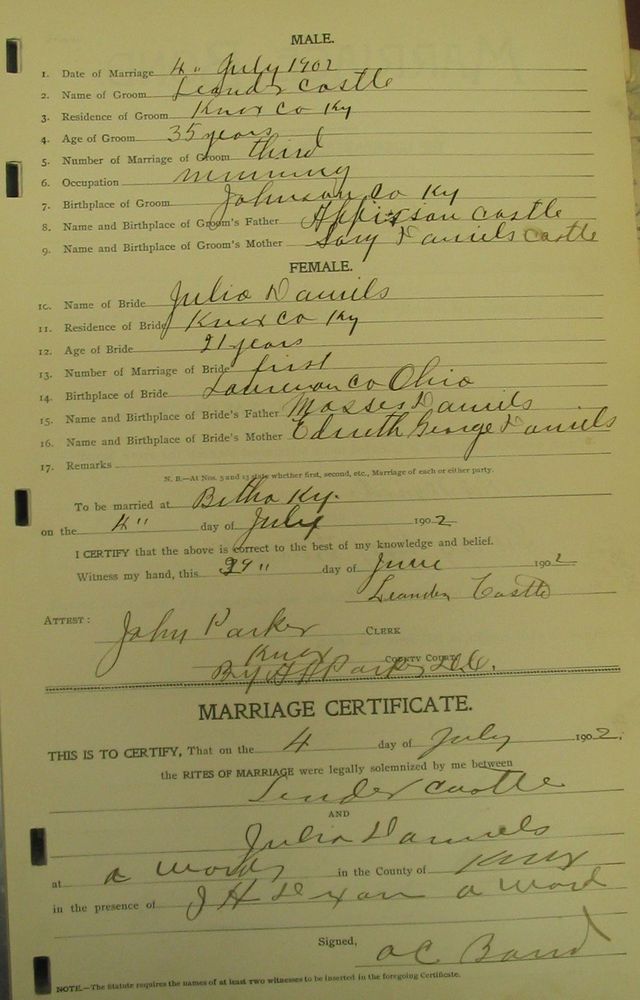 MALE.
1. Date of Marriage 4" July 1902
2. Name of Groom Leander Castle
3. Residence of Groom Knox Co Ky
4. Age of Groom 35 years
5. Number of Marriage of Groom third
6. Occupation minning
7. Birthplace of Groom Johnson Co Ky
8. Name and Birthplace of Groom's Father Castle
9. Name and Birthplace of Groom's Mother Daniels Castle
FEMALE.
10. Name of Bride Julia Daniels
11. Residence of Bride Knox Co Ky
12. Age of Bride 21 years
13. Number of Marriage of Bride first
14. Birthplace of Bride Co Ohio
15. Name and Birthplace of Bride's Father Mosses Daniels
16. Name and Birthplace of Bride's Mother George Daniels
17. Remarks
N. B.—At Nos. 5 and 13 state whether first, second, etc., Marriage of each or either party.
To be married at Ky.
on the 4" day of July 1902
I CERTIFY that the above is correct to the best of my knowledge and belief.
Witness my hand, this 29" day of June 1902
Leander Castle
ATTEST: John Parker CLERK
Knox COUNTY COURT
By Parker D.C.
MARRIAGE CERTIFICATE.
THIS IS TO CERTIFY, That on the 4 day of July 1902.
the RITES OF MARRIAGE were legally solemnized by me between
Lender Castle
AND
Julia Daniels
at in the County of Knox
in the presence of J H
Signed,
NOTE.—The Statute requires the names of at least two witnesses to be inserted in the foregoing Certificate.